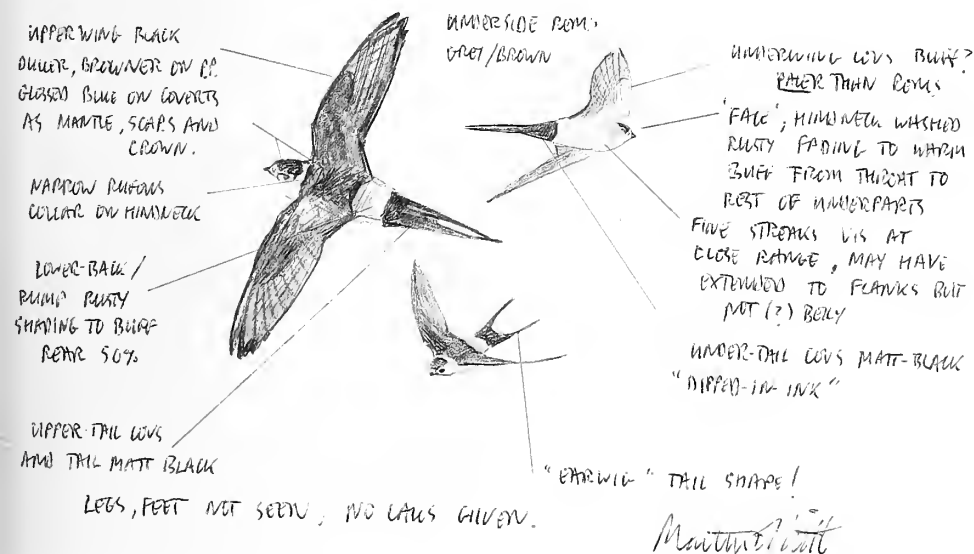 UPPERWING BLACK
DULLER, BROWNER ON PP.
GLOSSED BLUE ON COVERTS
AS MANTLE, SCAPS AND
CROWN.
NARROW RUFOUS
COLLAR ON HINDNECK
LOWER-BACK/
RUMP RUSTY
SHADING TO BUFF
REAR 50%
UPPER-TAIL COVS
AND TAIL MATT BLACK
UNDERSIDE REMS
GREY/BROWN
UNDERWING COVS BUFF?
PALER THAN REMS
'FACE', HINDNECK WASHED
RUSTY FADING TO WARM
BUFF FROM THROAT TO
REST OF UNDERPARTS
FINE STREAKS VIS AT
CLOSE RANGE, MAY HAVE
EXTENDED TO FLANKS BUT
NOT (?) BELLY
UNDER-TAIL COVS MATT-BLACK
"DIPPED-IN-INK"
"EARWIG" TAIL SHAPE!
LEGS, FEET NOT SEEN, NO CALLS GIVEN.